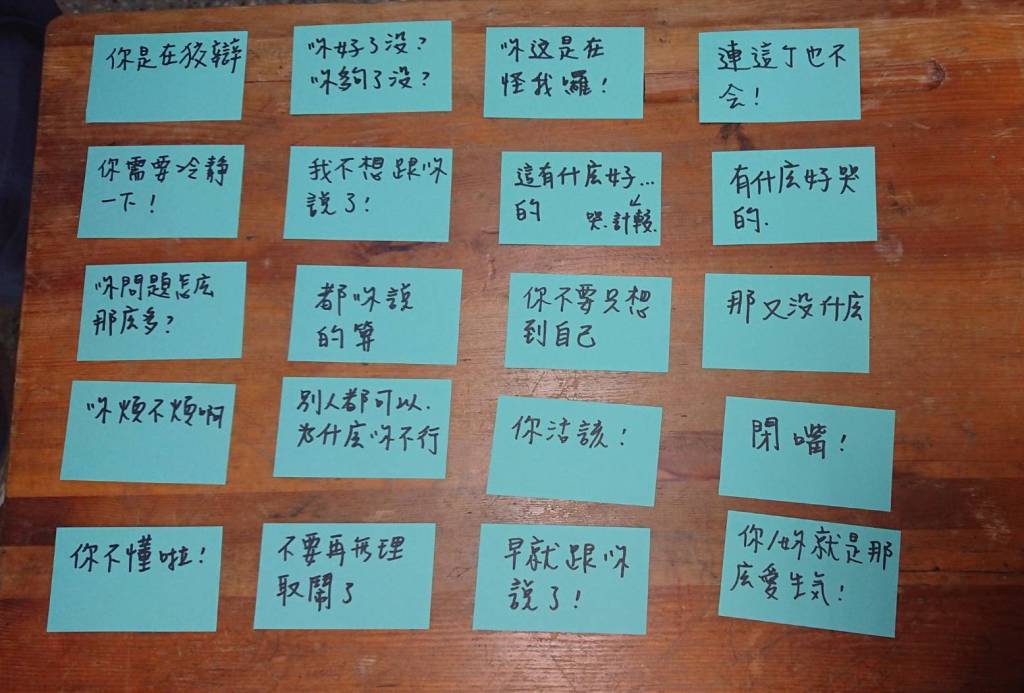 你是在狡辯
你好了没？
你夠了没？
你这是在
怪我囉！
連這个也不
会！
你需要冷靜
一下！
我不想跟你
說了！
這有什庅好…
的
哭.計較.
有什庅好哭
的.
你問題怎庅
那庅多？
都你說
的算
你不要只想
到自己
那又没什庅
你煩不煩啊
別人都可以.
为什庅你不行
你活該！
閉嘴！
你不懂啦！
不要再無理
取鬧了
早就跟你
說了！
你/妳就是那
庅愛生気！